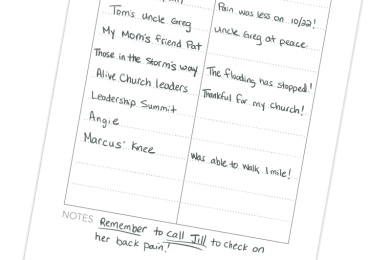 Tom's uncle Greg
Pain was less on 10/22!
My Mom's friend Pat
uncle Greg at peace.
Those in the storm's way
The flooding has stopped!
Alive Church leaders
Thankful for my church!
Leadership Summit
Angie
Marcus' Knee
was able to walk 1 mile!
NOTES Remember to call Jill to check on
her back pain!